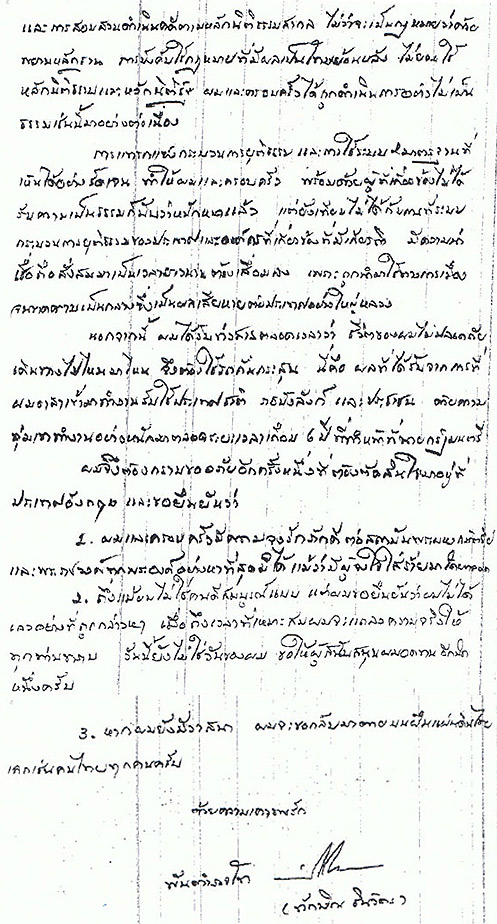 และการสอบสวนดำเนินคดีตามหลักนิติธรรมสากล ไม่ว่าจะเป็นกฎหมายว่าด้วย
พยานหลักฐาน การบังคับใช้กฎหมายที่มีผลเป็นโทษย้อนหลัง ไม่ยอมใช้
หลักนิติธรรมและหลักนิติรัฐ ผมและครอบครัวได้ถูกดำเนินการอย่างไม่เป็น
ธรรมเช่นนี้มาอย่างต่อเนื่อง
การแทรกแซงกระบวนการยุติธรรม และการใช้ระบบ 2 มาตรฐานที่
เห็นได้อย่างชัดเจน ทำให้ผมและครอบครัว พร้อมด้วยผู้ที่เกี่ยวข้องไม่ได้
รับความเป็นธรรมก็นับว่าหนักหนาแล้ว แต่ยังเทียบไม่ได้กับการที่ระบบ
กระบวนการยุติธรรมของประเทศและองค์กรที่เกี่ยวข้องที่มีเกียรติ มีความน่า
เชื่อถือสั่งสมมาเป็นเวลายาวนาน ต้องเสื่อมลง เพราะถูกนำมาใช้ทางการเมือง
จนขาดความเป็นกลางซึ่งเป็นผลเสียหายต่อประเทศอย่างใหญ่หลวง
นอกจากนี้ ผมได้รับข่าวสารตลอดเวลาว่า ชีวิตของผมไม่ปลอดภัย
เดินทางไปไหนมาไหน จึงต้องใช้รถกันกระสุน นี่คือ ผลที่ได้รับจากการที่
ผมอาสาเข้ามาทำงานรับใช้ประเทศชาติ ราชบัลลังก์ และประชาชน ด้วยความ
ทุ่มเททำงานอย่างหนักมาตลอดระยะเวลาเกือบ 6 ปี ที่ทำหน้าที่นายกรัฐมนตรี
ผมจึงต้องกราบขออภัยอีกครั้งหนึ่งที่ต้องตัดสินใจมาอยู่ที่
ประเทศอังกฤษ และขอยืนยันว่า
1. ผมและครอบครัวมีความจงรักภักดีต่อสถาบันพระมหากษัตริย์
และพระราชวงศ์ทุกพระองค์อย่างหาที่สุดมิได้ แม้ว่ามีผู้จงใจใส่ร้ายมาโดยตลอด
2. ถึงแม้ผมไม่ใช่คนดีสมบูรณ์แบบ แต่ผมขอยืนยันว่าผมไม่ได้
เลวอย่างที่ถูกกล่าวหา เมื่อถึงเวลาที่เหมาะสมผมจะแถลงความจริงให้
ทุกท่านทราบ วันนี้ยังไม่ใช่วันของผม ขอให้ผู้สนับสนุนผมอดทน อีกนิด
หนึ่งครับ
3. หากผมยังมีวาสนา ผมจะขอกลับมาตายบนผืนแผ่นดินไทย
เฉกเช่นคนไทยทุกคนครับ
ด้วยความเคารพรัก
พันตำรวจโท
(ทักษิณ ชินวัตร)